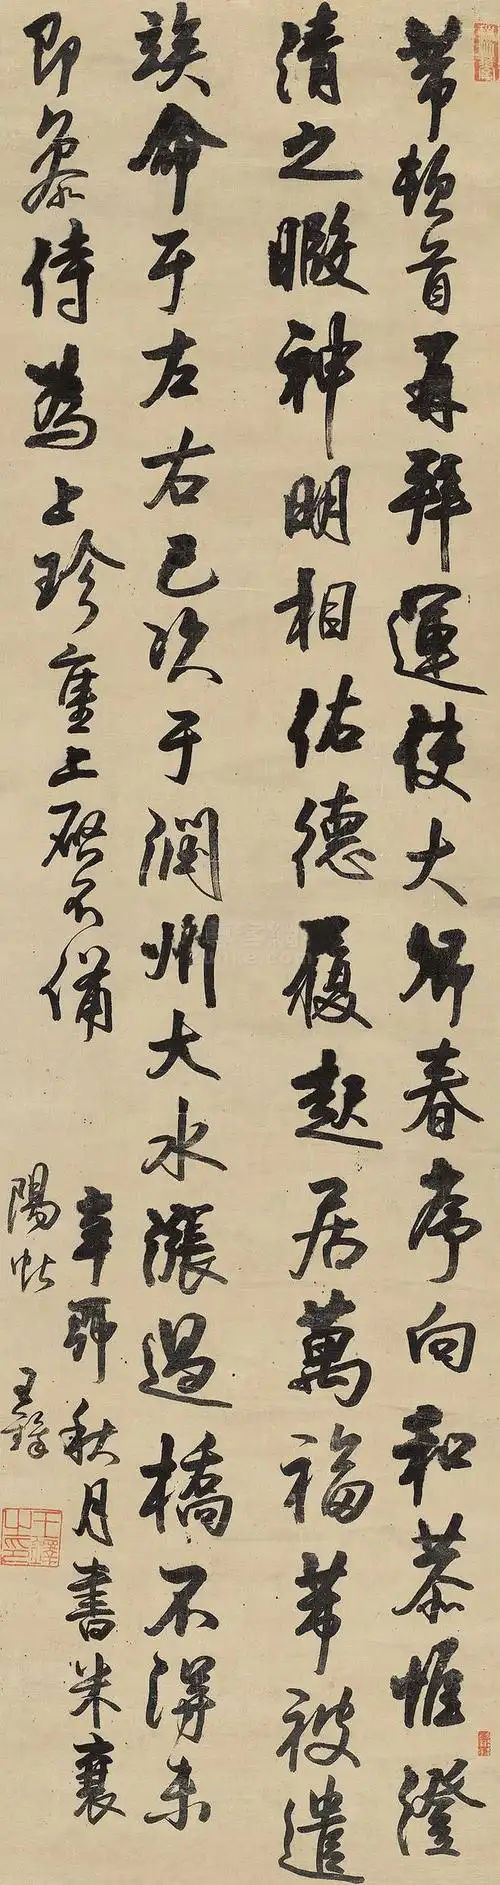 芾頓首再拜運使大春序向和恭惟澄
清之暇神明相佑德履起居萬福芾被遣
竢命于左右已次于潤州大水漲過橋不得未
即參侍為上珍重上啟不備
辛卯秋月書米襄
陽帖
王鐸
王鐸之印